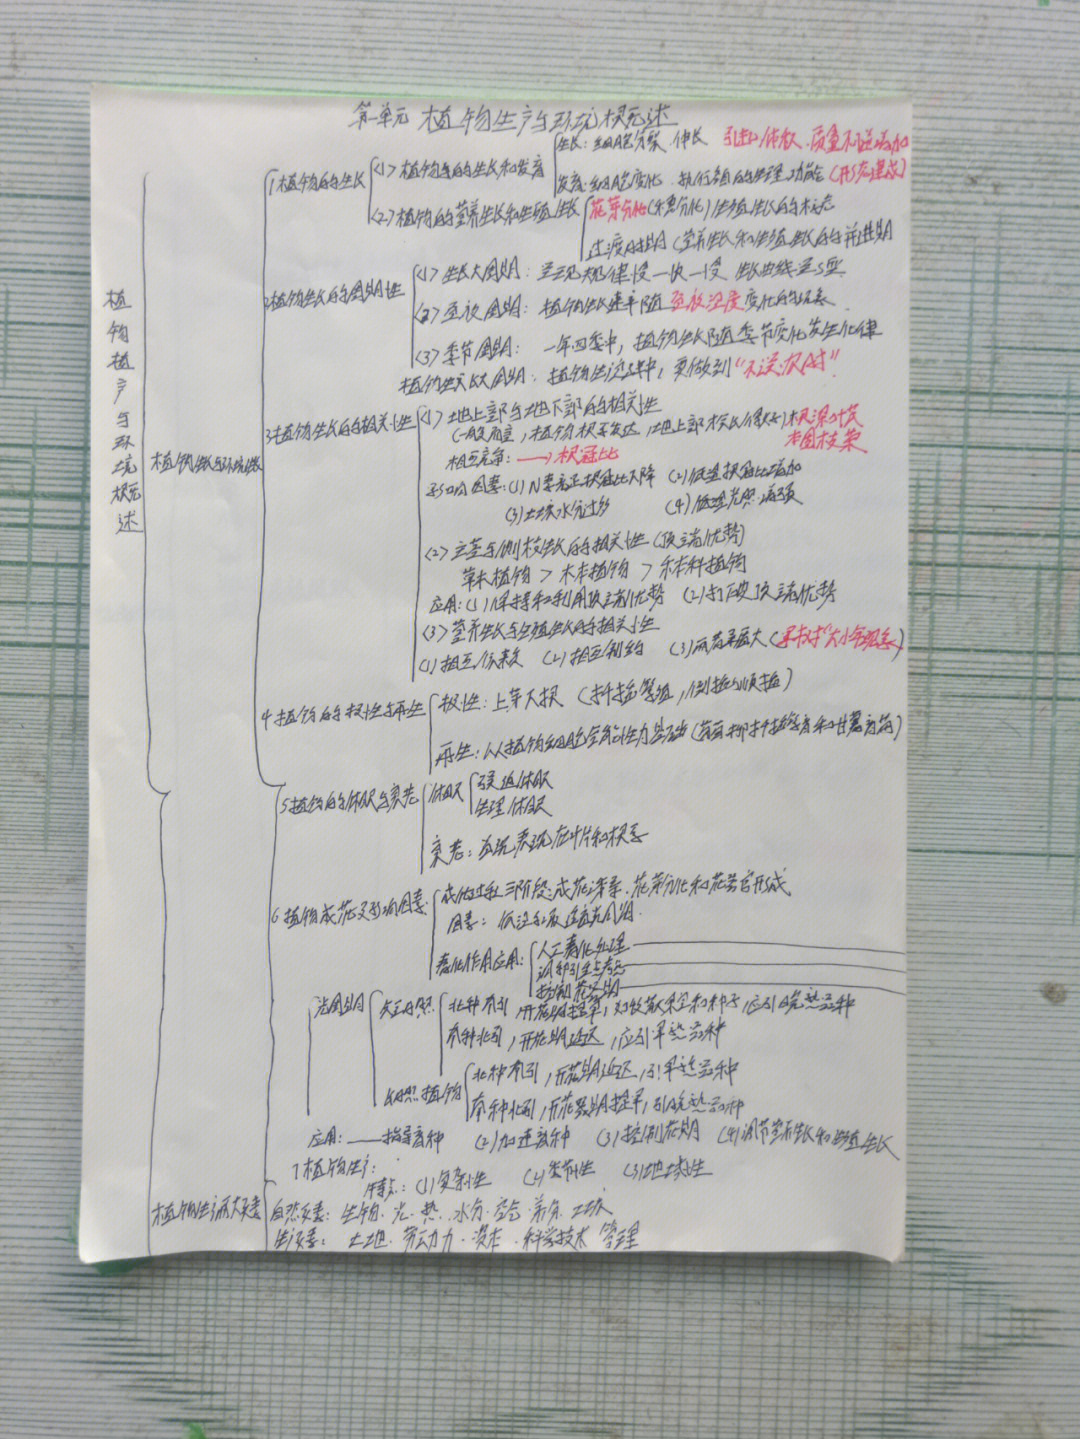 第一单元 植物生产与环境概述
植物植产与环境概述
植物生长与环境
1植物的生长
(1)植物的生长和发育
生长:细胞分裂、伸长 引起体积、质量不逆增加
发育:细胞变化、执行 的生理功能(形态建成)
(2)植物的营养生长和生殖生长
花芽分化(穗分化)生殖生长的标志
过渡时期(营养生长和生殖生长的并进期
2植物生长的周期性
(1)生长大周期:呈现规律慢一快一慢 生长曲线呈S型
(2)昼夜周期:植物生长速率随昼夜温度变化的现象
(3)季节周期: 一年四季中,植物生长随季节变化发生 律
植物生长大周期:植物生 中,要做到“不误农时”
3植物生长的相关性
(1)地上部与地下部的相关性
(一般而言,植物根系发达,地上部 长得好)根深叶茂
本固枝荣
相互竞争:→根冠比
影响因素:(1)N 根冠比下降 (2)低温根冠比增加
(3)土壤水分过多 (4)
(2)主茎与侧枝生长的相关性(顶端优势)
草本植物>木本植物>禾本科植物
应用:(1)保持和利用顶端优势 (2)打破顶端优势
(3)营养生长与生殖生长的相关性
(1)相互依赖 (2)相互制约 (3)两者 大(果树“大小年现象)
4植物的极性与再生
极性:上芽下根(扦插繁殖,倒插与顺插)
再生:以植物细胞全能性为基础( 柳扦插繁育和甘薯育苗)
5植物的休眠与衰老
休眠
强迫休眠
生理休眠
衰老: 表现在叶片和根系
6植物成花及影响因素
成花过程三阶段:成花诱导、花芽分化和花器官形成
因素: 低温和适宜光周期.
春化作用应用:
人工春化处理
调种引
控制花期
光周期
短日照
北种南引,开花期提早,如收获果实和种子,应引晚熟品种
南种北引,开花期延迟,应引早熟品种
长日照植物
北种南引,开花期延迟,引早熟品种
南种北引,开花期提早,引晚熟品种
应用:——指导育种 (2)加速育种 (3)控制花期 (4)调节营养生长和生殖生长
7植物生产:
特点:(1)复杂性 (2)季节性 (3)地域性
植物生产两大要素
自然要素:生物、光、热、水分、空气、养分、土壤
生产要素: 土地、劳动力、资本、科学技术 管理